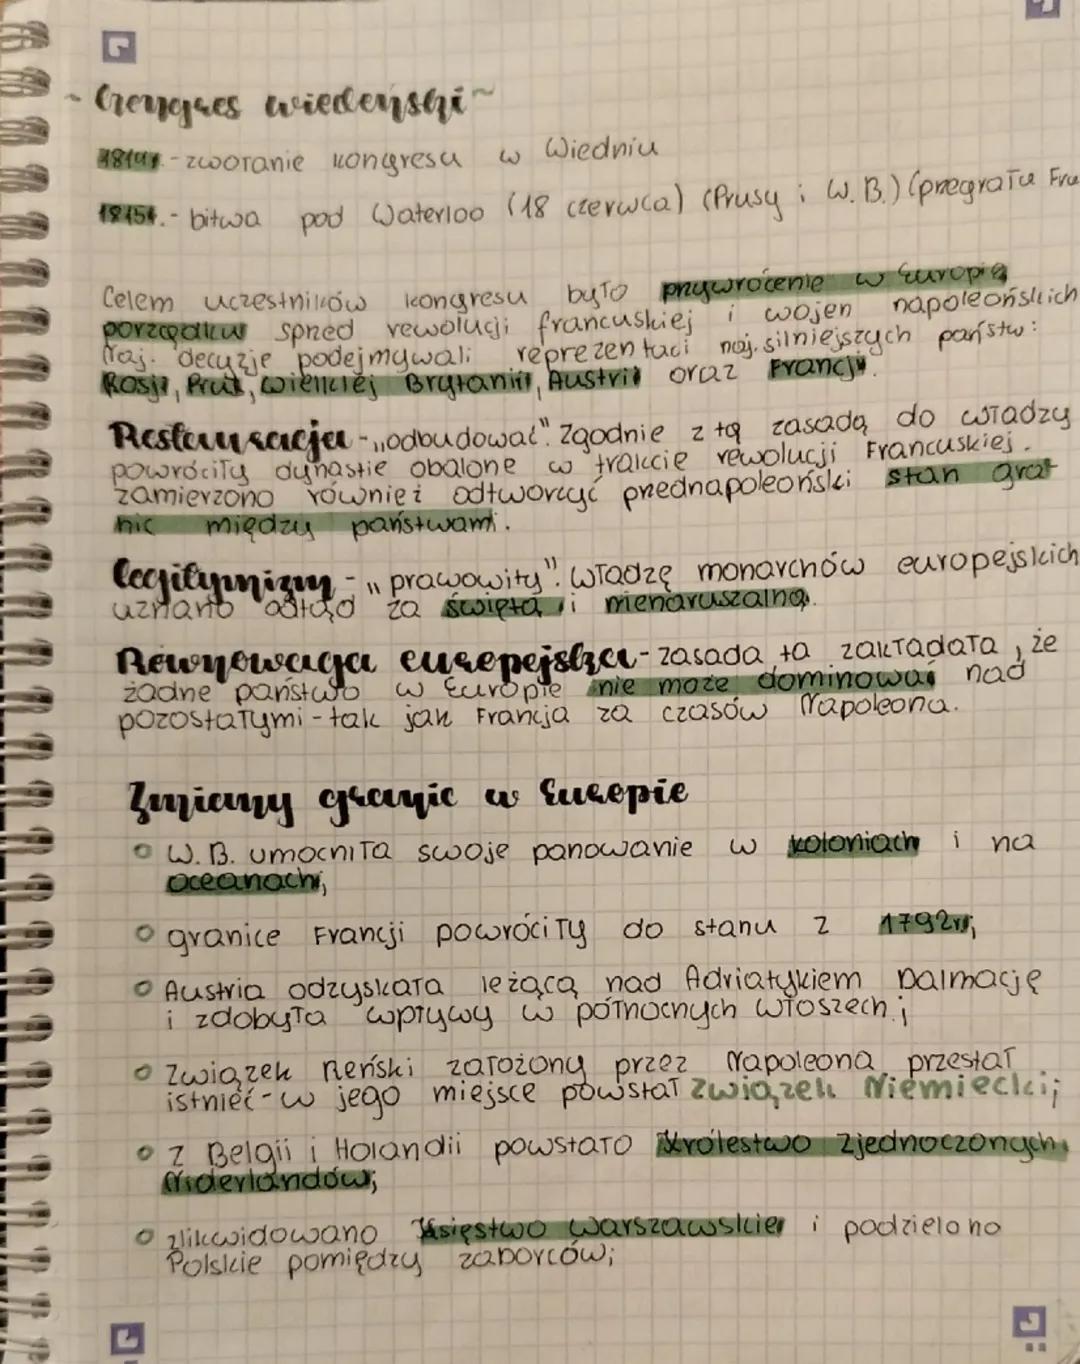 ~ Kongres wiedeński ~
1814r. - zwołanie kongresu w Wiedniu
1815r. - bitwa pod Waterloo (18 czerwca) (Prusy i W.B.) (przegrała Fra
Celem uczestników kongresu było przywrócenie w Europie
porządku sprzed rewolucji francuskiej i wojen napoleońskich
Naj. decyzje podejmywali reprezentaci naj.silniejszych państw:
Rosji, Prus, Wielkiej Brytanii, Austrii oraz Francji.
Restauracja - „odbudować". Zgodnie z tą zasadą do władzy
powróciły dynastie obalone w trakcie rewolucji Francuskiej.
zamierzono również odtworzyć przednapoleoński stan gra-
nic między państwami.
Legitymizm - „prawowity". Władzę monarchów europejskich
uznano odtąd za świętą i nienaruszalną.
Równowaga europejska - zasada ta zakładała, że
żadne państwo w Europie nie może dominować nad
pozostałymi - tak jak Francja za czasów Napoleona.
Zmiany granic w Europie
○ W.B. umocniła swoje panowanie w koloniach i na
oceanach;
○ granice Francji powróciły do stanu z 1792r;
○ Austria odzyskała leżącą nad Adriatykiem Dalmację
i zdobyła wpływy w północnych Włoszech;
○ Związek Reński założony przez Napoleona przestał
istnieć - w jego miejsce powstał Związek Niemiecki;
○ Z Belgii i Holandii powstało Królestwo Zjednoczonych
Niderlandów;
○ zlikwidowano Księstwo Warszawskie i podzielono
Polskie pomiędzy zaborców;